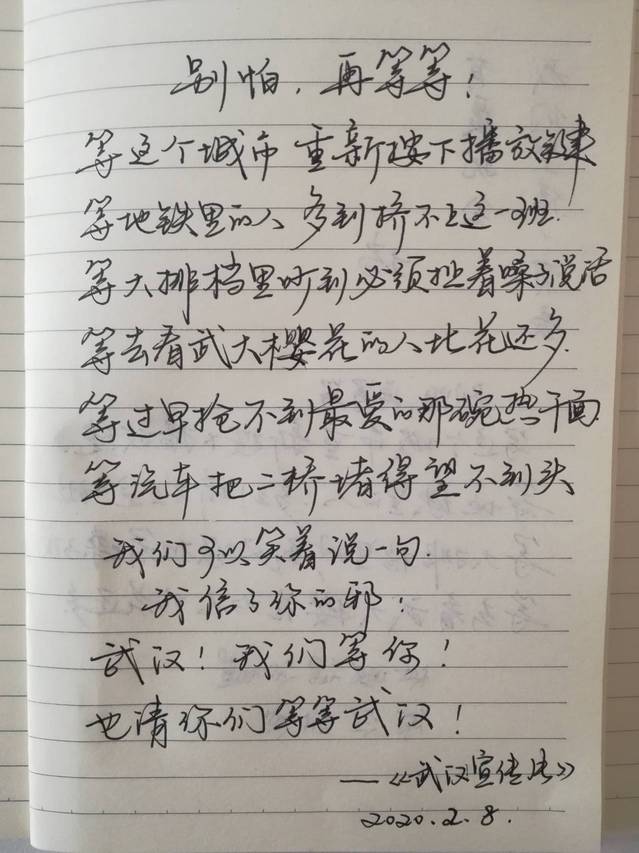 别怕，再等等！
等这个城市 重新按下播放键
等地铁里的人 多到挤不上这一班.
等大排档里吵到必须扯着嗓子说话
等去看武大樱花的人比花还多.
等过早抢不到最爱的那碗热干面.
等汽车把二桥堵得望不到头
我们可以笑着说一句.
我信了你的邪！
武汉！我们等你！
也请你们等等武汉！
——《武汉宣传片》
2020.2.8.